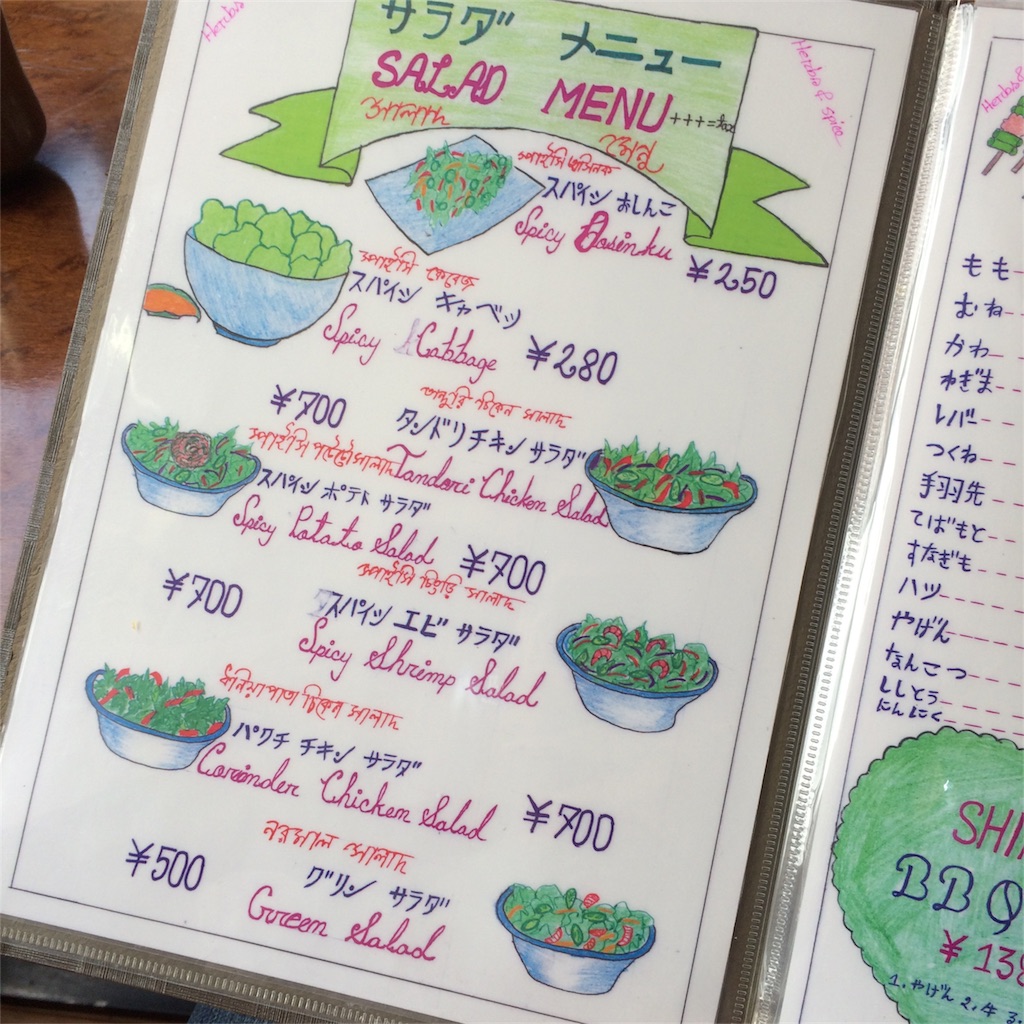 Herbs
サラダ メニュー
SALAD MENU
সালাদ মেনু
Herbs & spice
স্পাইসি
スパイシ おしんこ
Spicy Oosinku
¥250
স্পাইসি কেবেজ
スパイシ キャベツ
Spicy Cabbage
¥280
¥700
তান্দুরি চিকেন সালাদ
タンドリチキン サラダ
Tandori Chicken Salad
স্পাইসি পটেটো সালাদ
スパイシ ポテト サラダ
Spicy Potato Salad
¥700
¥700
স্পাইসি চিংড়ি সালাদ
スパイシ エビ サラダ
Spicy Shrimp Salad
ধনিয়াপাতা চিকেন সালাদ
パクチ チキン サラダ
Corinder Chicken Salad
¥700
¥500
নরমাল সালাদ
グリン サラダ
Green Salad
Herbs &
もも
むね
かわ
ねぎま
レバー
つくね
手羽先
てばもと
すなぎも
ハツ
やげん
なんこつ
ししとう
にんにく
SHI
BBQ
¥ 138
1. やげん 2. 牛 3.